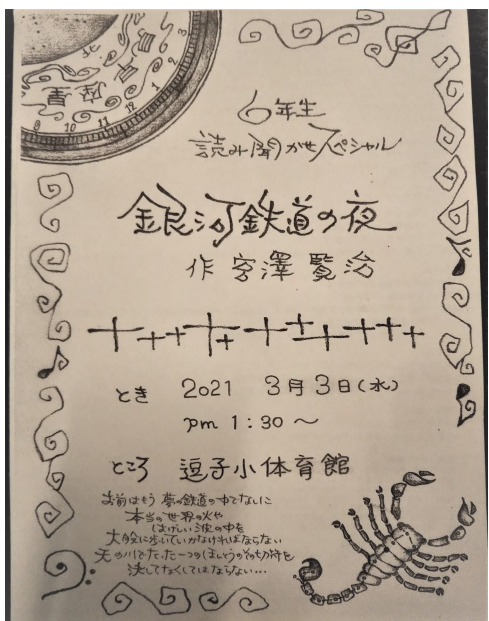 北
星座早見
8 9 10 11 12 1 2 3
6年生
読み聞かせスペシャル
銀河鉄道の夜
作 宮澤賢治
とき 2021 3月3日(水)
pm 1:30 〜
ところ 逗子小体育館
お前はもう 夢の鉄道の中でないに
本当の世界の火や
はげしい波の中を
大股に歩いていかなければならない
天の川でたった一つのほんとうのその切符を
決してなくしてはならない…